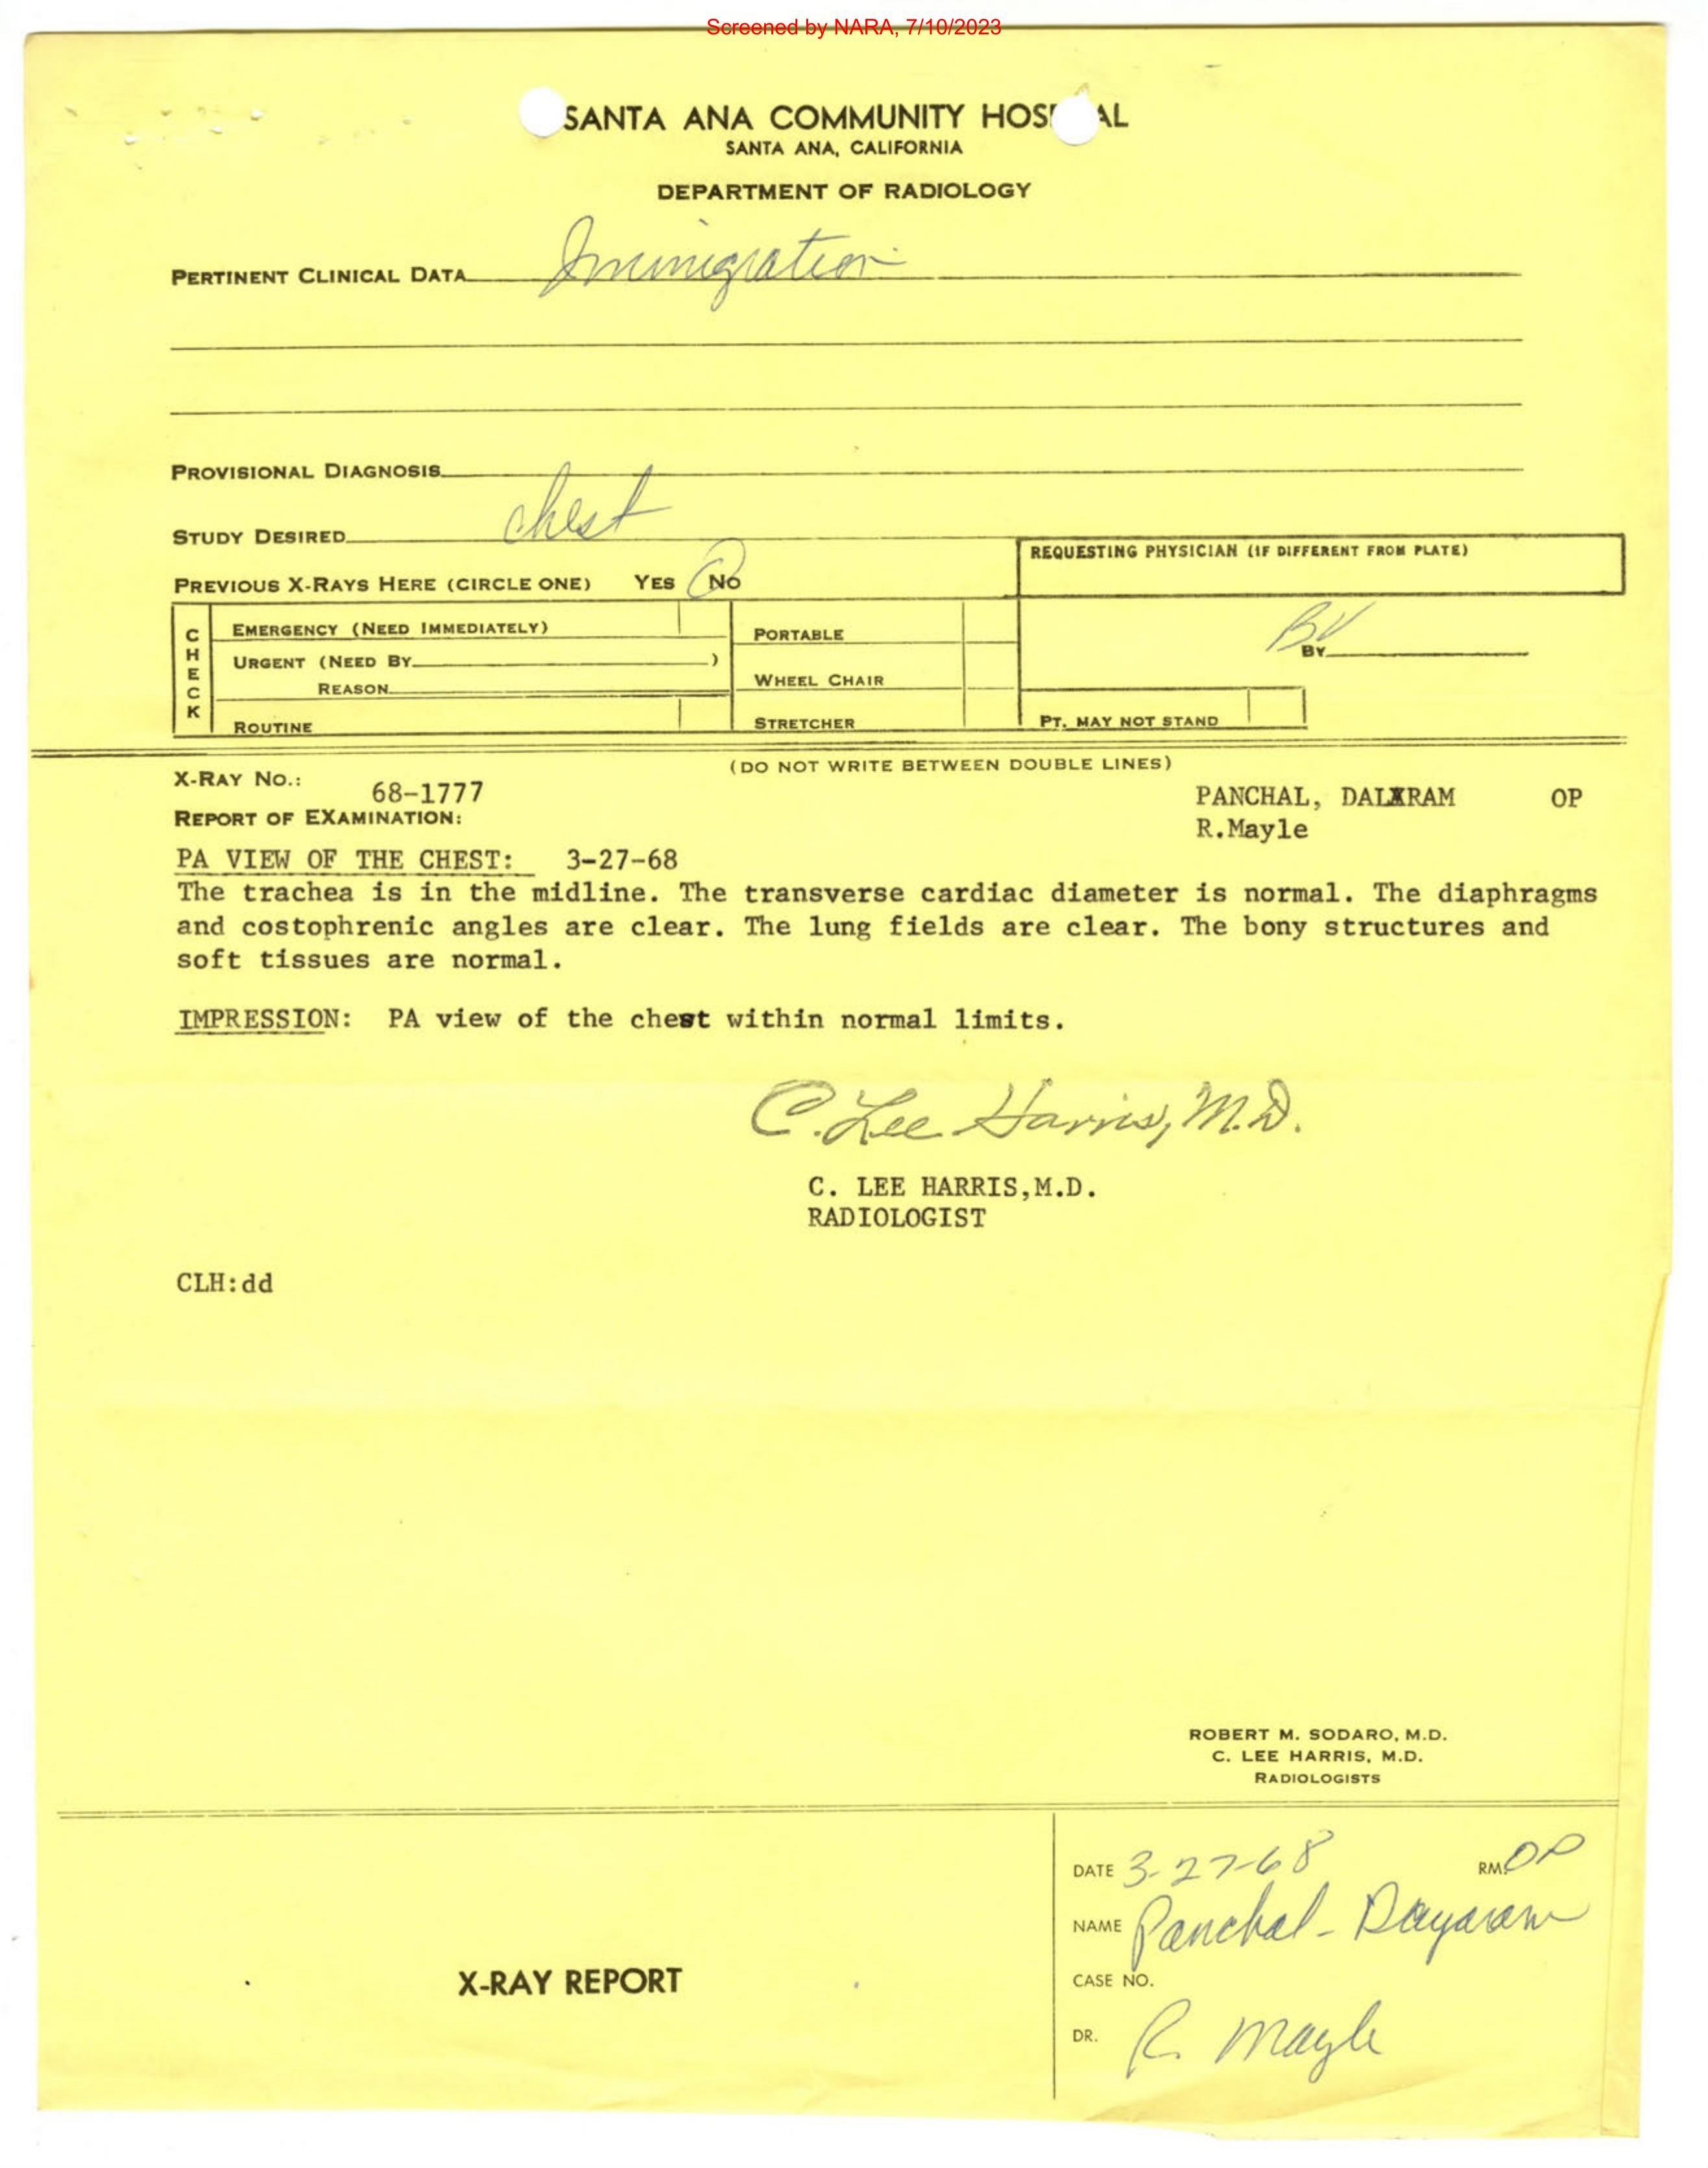 Screened by NARA, 7/10/2023
SANTA ANA COMMUNITY HOSPITAL
SANTA ANA, CALIFORNIA
DEPARTMENT OF RADIOLOGY
PERTINENT CLINICAL DATA Immigration
PROVISIONAL DIAGNOSIS
STUDY DESIRED chest
REQUESTING PHYSICIAN (IF DIFFERENT FROM PLATE)
PREVIOUS X-RAYS HERE (CIRCLE ONE) YES NO
CHECK
EMERGENCY (NEED IMMEDIATELY)
URGENT (NEED BY )
REASON
ROUTINE
PORTABLE
WHEEL CHAIR
STRETCHER
BV
BY
PT. MAY NOT STAND
(DO NOT WRITE BETWEEN DOUBLE LINES)
X-RAY NO.: 68-1777
PANCHAL, OP
R.Mayle
REPORT OF EXAMINATION:
PA VIEW OF THE CHEST: 3-27-68
The trachea is in the midline. The transverse cardiac diameter is normal. The diaphragms
and costophrenic angles are clear. The lung fields are clear. The bony structures and
soft tissues are normal.
IMPRESSION: PA view of the chest within normal limits.
C. Lee Harris, M.D.
C. LEE HARRIS,M.D.
RADIOLOGIST
CLH:dd
ROBERT M. SODARO, M.D.
C. LEE HARRIS, M.D.
RADIOLOGISTS
X-RAY REPORT
DATE 3-27-68 RM. OP
NAME Panchal - Dayaram
CASE NO.
DR. R. Mayle